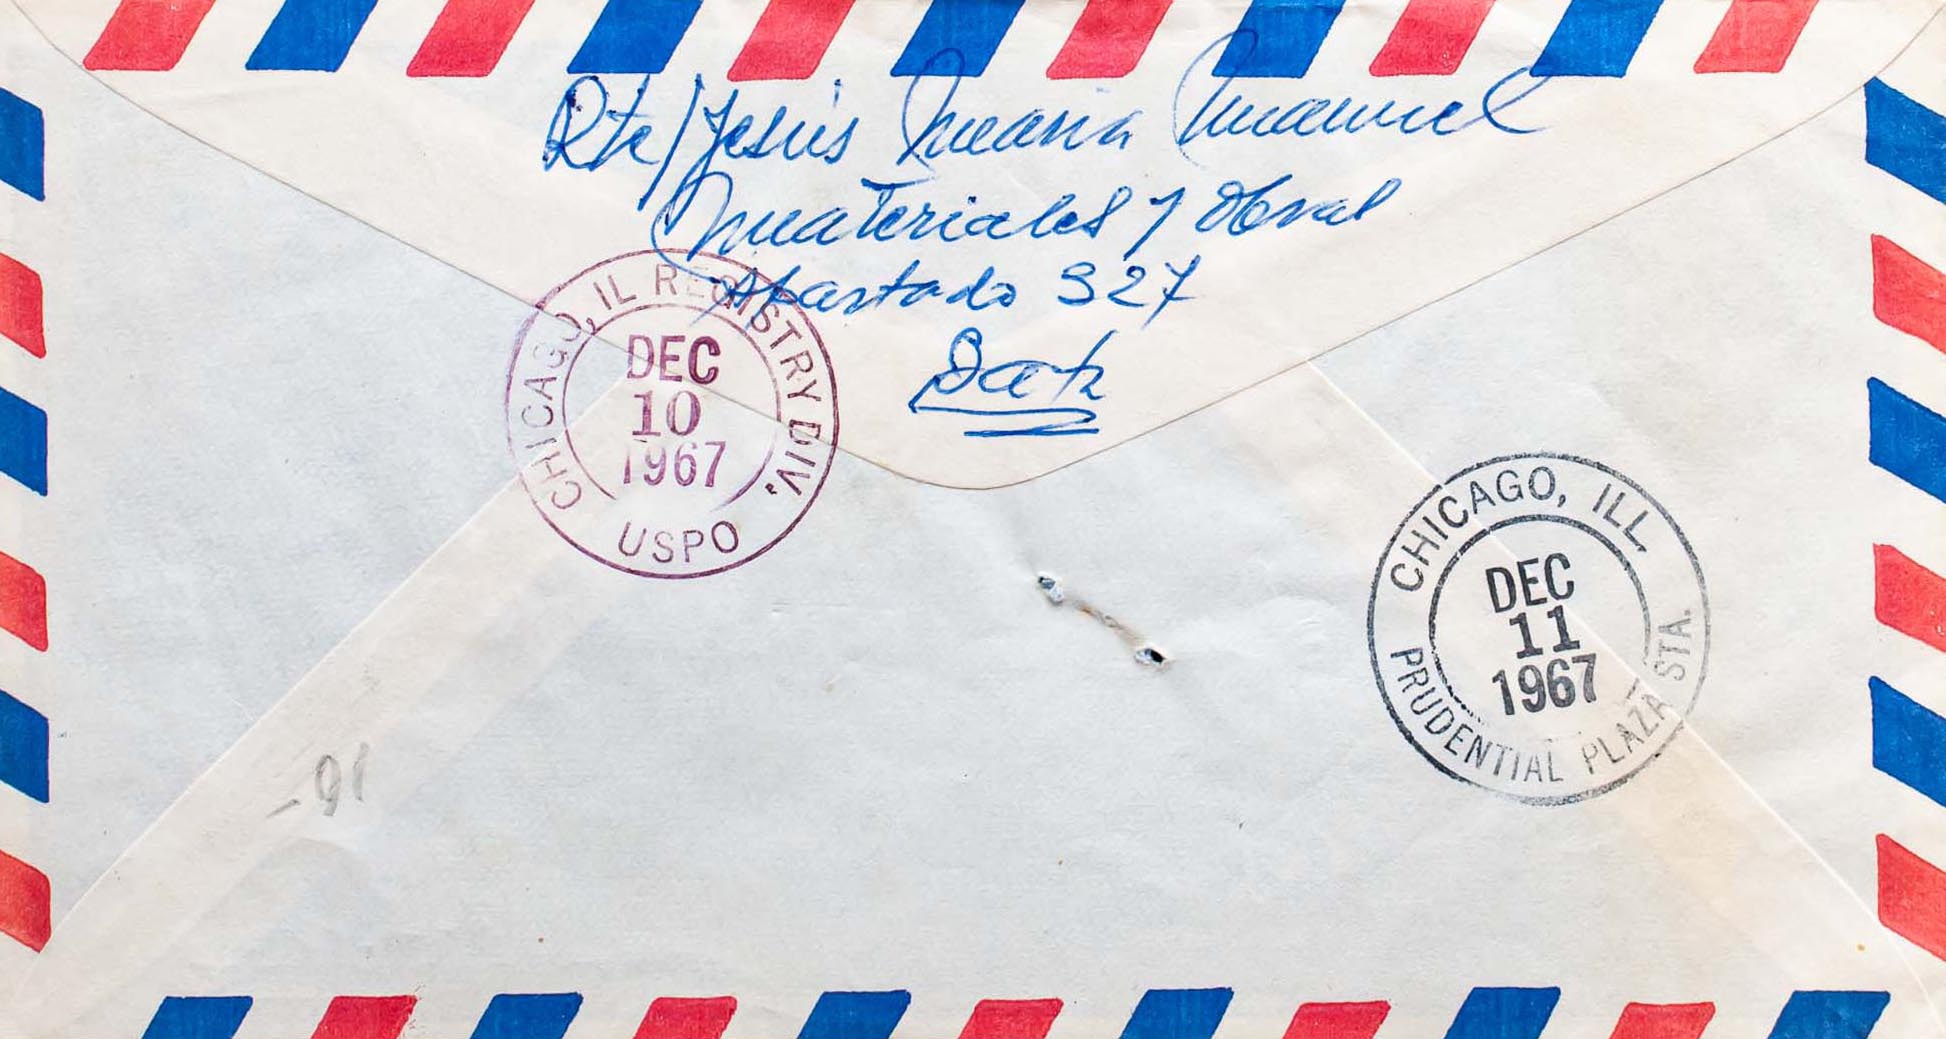 Rte/Jesús Maria Manuel
Materiales y Obras
Apartado 327
Bata
CHICAGO, IL REGISTRY DIV.
DEC
10
1967
USPO
CHICAGO, ILL.
DEC
11
1967
PRUDENTIAL PLAZA STA.